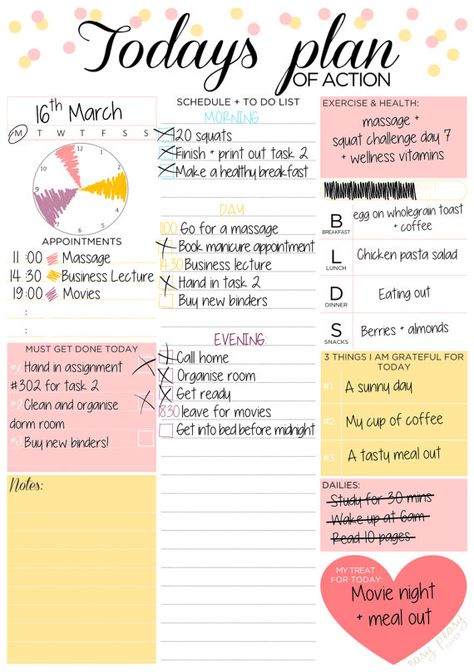 Todays plan
OF ACTION
16th March
M T W T F S S
APPOINTMENTS
11:00 Massage
14:30 Business Lecture
19:00 Movies
:
:
MUST GET DONE TODAY
Hand in assignment
#302 for task 2
Clean and organise
dorm room
Buy new binders!
Notes:
SCHEDULE + TO DO LIST
MORNING
20 squats
Finish + print out task 2
Make a healthy breakfast
DAY
Go for a massage
Book manicure appointment
430 Business lecture
Hand in task 2
Buy new binders
EVENING:
Call home
Organise room
Get ready
830 leave for movies
Get into bed before midnight
EXERCISE & HEALTH:
massage +
squat challenge day 7
+ wellness vitamins
B
BREAKFAST
egg on wholegrain toast
+ coffee
L
LUNCH
Chicken pasta salad
D
DINNER
Eating out
S
SNACKS
Berries + almonds
3 THINGS I AM GRATEFUL FOR
TODAY
#1. A sunny day
#2. My cup of coffee
#3. A tasty meal out
DAILIES:
Study for 30 mins
Wake up at 6am
Read 10 pages
MY TREAT
FOR TODAY:
Movie night
+ meal out